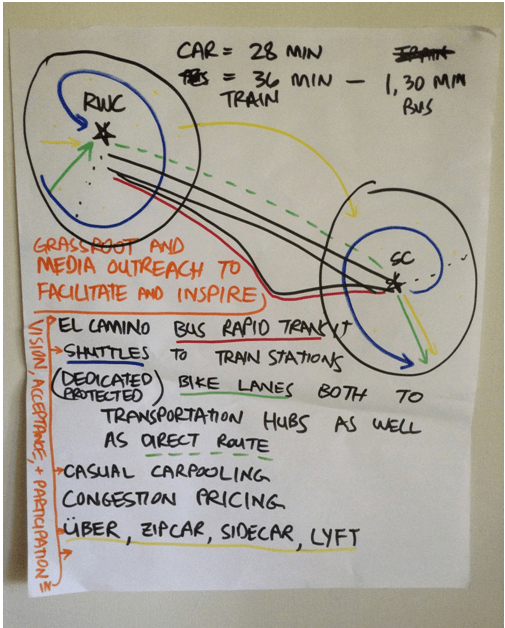 CAR = 28 MIN
= 36 MIN - 1,30 MIN
TRAIN BUS
RWC
SC
GRASSROOT AND
MEDIA OUTREACH TO
FACILITATE AND INSPIRE
VISION, ACCEPTANCE, + PARTICIPATION IN
EL CAMINO BUS RAPID TRANSIT
SHUTTLES TO TRAIN STATIONS
(DEDICATED PROTECTED) BIKE LANES BOTH TO
TRANSPORTATION HUBS AS WELL
AS DIRECT ROUTE
CASUAL CARPOOLING
CONGESTION PRICING
ÜBER, ZIPCAR, SIDECAR, LYFT